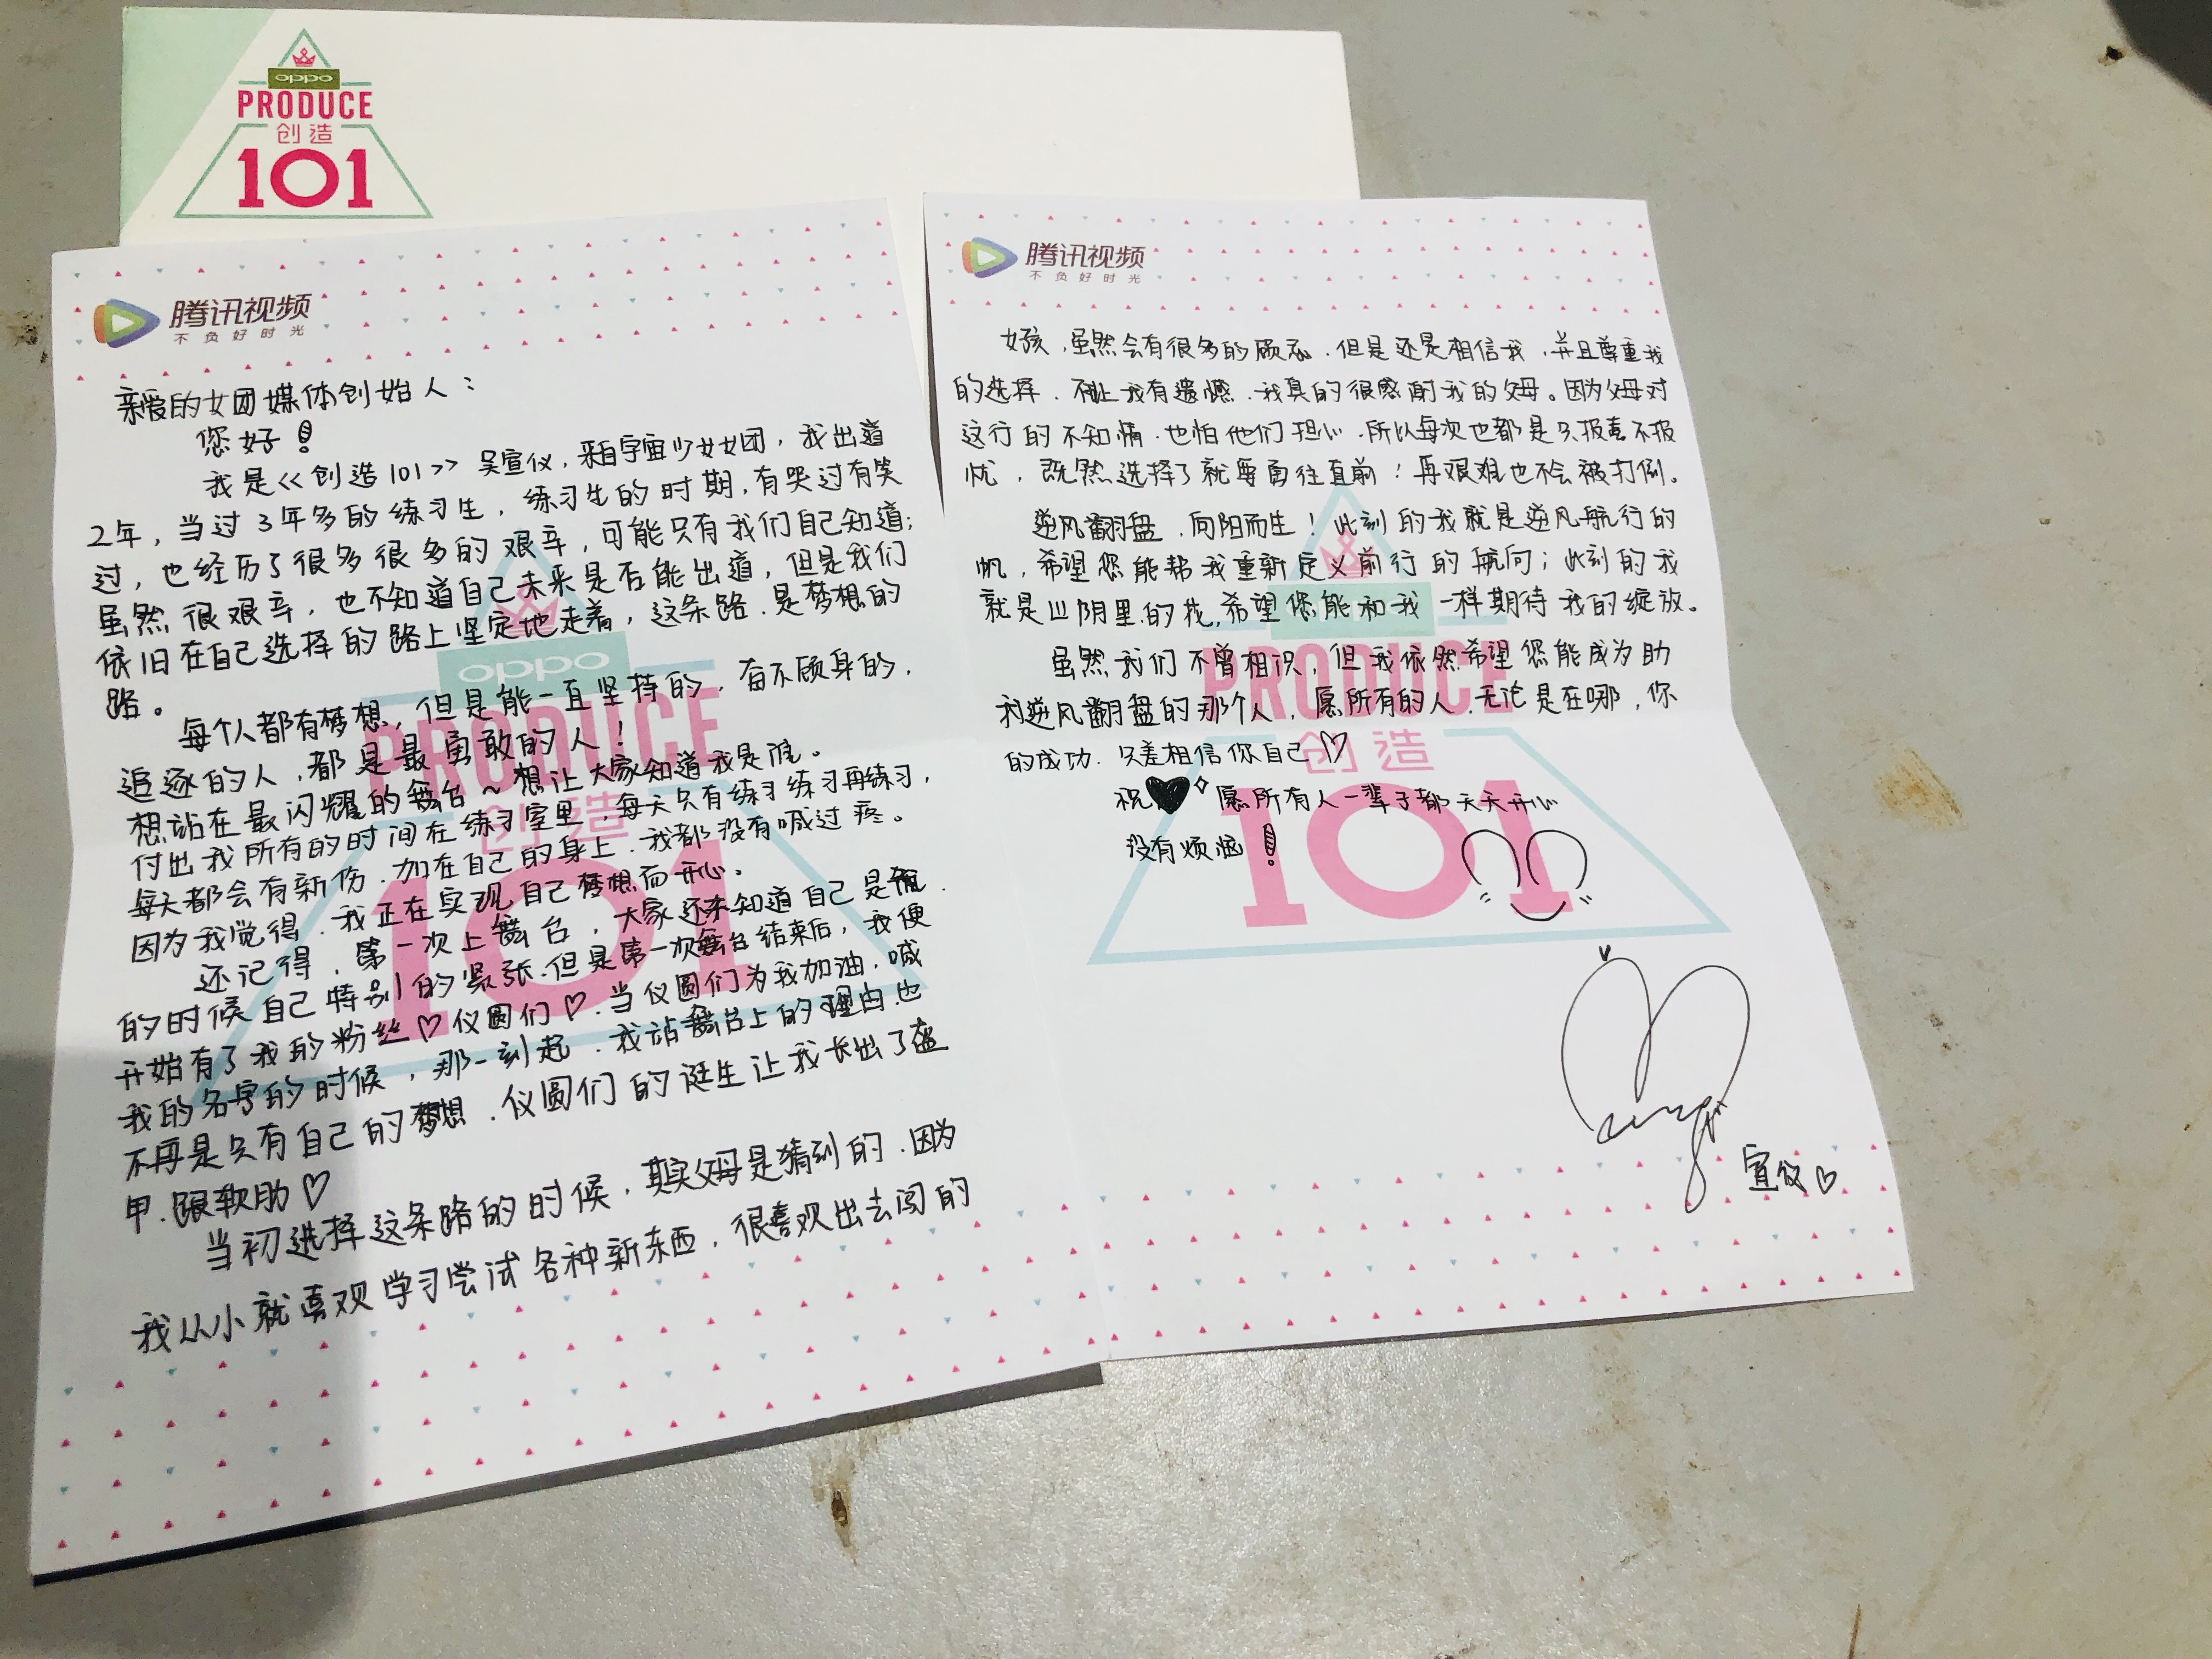 oppo
PRODUCE
创造
101
腾讯视频
不负好时光
亲爱的女团媒体创始人：
您好！
我是<<创造101>>吴宣仪，来自宇宙少女女团，我出道
2年，当过3年多的练习生，练习生的时期，有哭过有笑
过，也经历了很多很多的艰辛，可能只有我们自己知道；
虽然很艰辛，也不知道自己未来是否能出道，但是我们
依旧在自己选择的路上坚定地走着，这条路.是梦想的
路。
每个人都有梦想，但是能一直坚持的，奋不顾身的，
追逐的人，都是最勇敢的人！
想站在最闪耀的舞台～想让大家知道我是谁。
付出我所有的时间在练习室里，每天只有练习练习再练习，
每天都会有新伤.加在自己的身上.我都没有喊过疼。
因为我觉得.我正在实现自己梦想而开心。
还记得，第一次上舞台，大家还未知道自己是谁.
的时候自己特别的紧张.但是第一次舞台结束后，我便
开始有了我的粉丝♡仪圆们♡.当仪圆们为我加油.喊
我的名字的时候，那一刻起.我站舞台上的理由.也
不再是只有自己的梦想.仪圆们的诞生让我长出了盔
甲.跟软肋♡
当初选择这条路的时候，其实父母是猜到的.因为
我从小就喜欢学习尝试各种新东西，很喜欢出去闯的
腾讯视频
不负好时光
女孩，虽然会有很多的顾忌.但是还是相信我，并且尊重我
的选择.不让我有遗憾.我真的很感谢我的父母。因为父母对
这行的不知情.也怕他们担心.所以每次也都是只报喜不报
忧，既然选择了就要勇往直前！再艰难也不会被打倒。
逆风翻盘，向阳而生！此刻的我就是逆风航行的
帆，希望您能帮我重新定义前行的航向；此刻的我
就是山阴里的花，希望您能和我一样期待我的绽放。
虽然我们不曾相识，但我依然希望您能成为助
我逆风翻盘的那个人，愿所有的人.无论是在哪，你
的成功.只差相信你自己♡
祝♥愿所有人一辈子都天天开心
没有烦恼！
宣仪♡
oppo
PRODUCE
创造
101
PRODUCE
创造
101